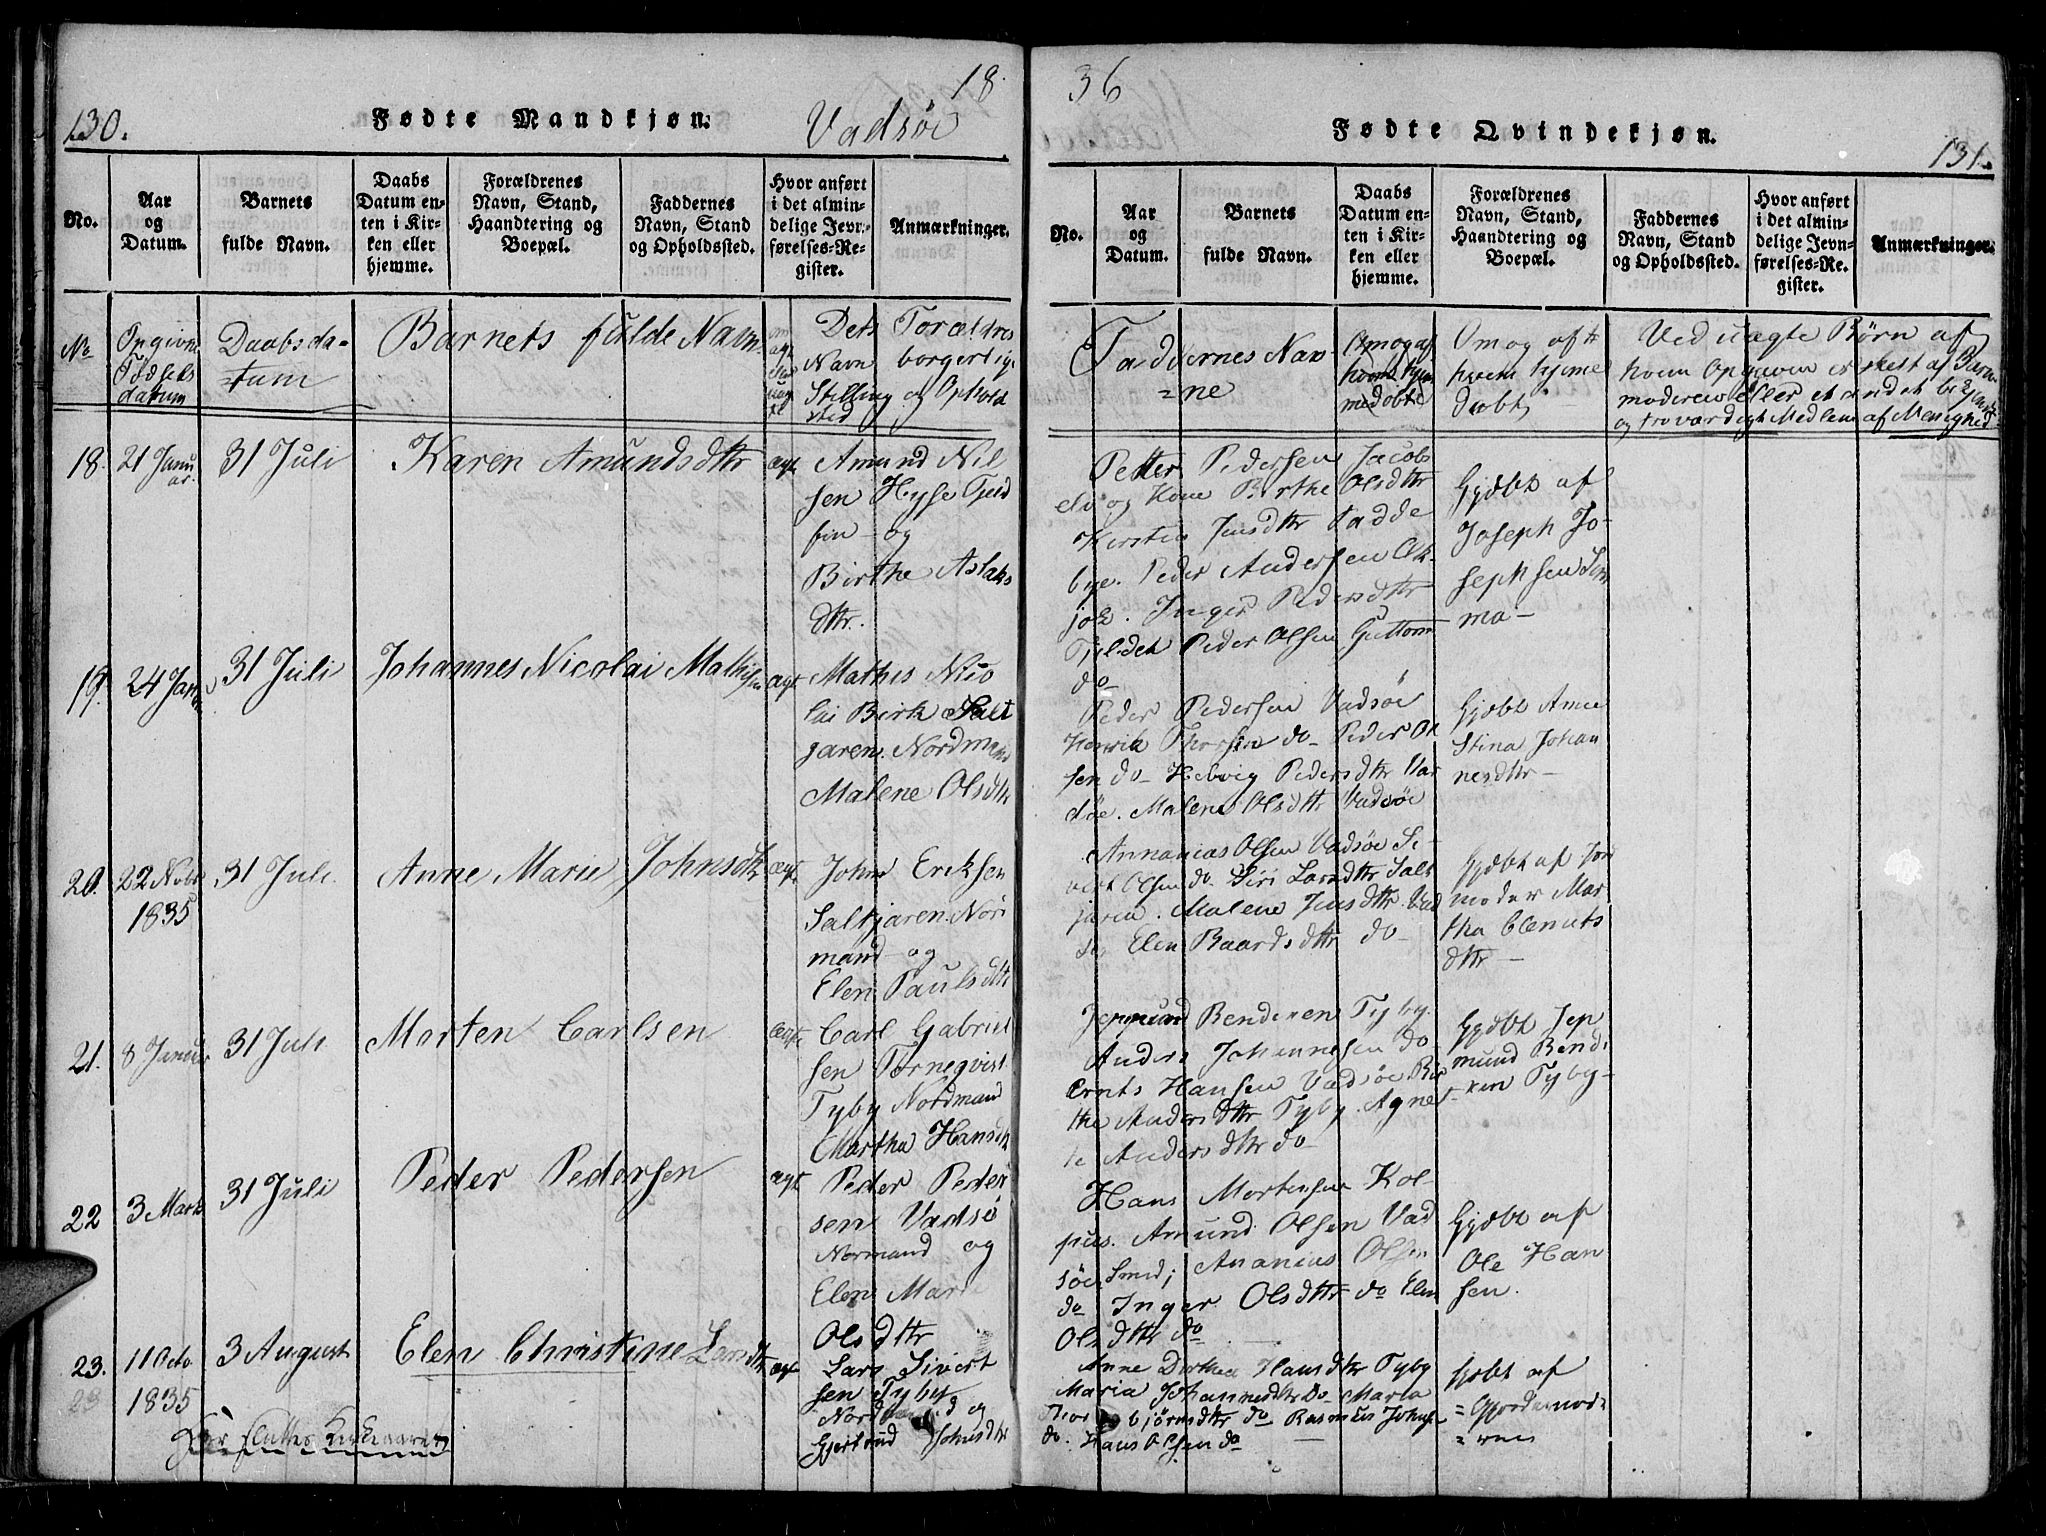 130.
Fødte Mandkjøn.
Vadsøe
18
No.
Aar
og
Datum.
Barnets
fulde Navn.
Daabs
Datum en-
ten i Kir-
ken eller
hjemme.
Forældrenes
Navn, Stand,
Haandtering og
Boepæl.
Faddernes
Navn, Stand
og Opholdssted.
Hvor anført
i det almin-
delige Jevn-
førelses-Re-
gister.
Anmærkninger.
No
Opgivne
Födsels
datum
Daabsda-
tum
Barnets fulde Navn
om
ægte
eller
uæg
te
Dets Forældres
Navn borgerlige
Stilling og Ophold
sted
18.
21 Janu
ar.
31 Juli
Karen Amundsdtr
ægt
Amund Nil
sen Hysse Fjeld
fin og
Birthe Aslaks
dtr.
19.
24 Jan
31 Juli
Johannes Nicolai Mathisen
ægt
Mathis Nico
lai Birk Salt
jaren. Nordmand
Malene Olsdtr
20.
22 Nobr
1835
31 Juli
Anne Marie Johnsdtr
ægt
John Eriksen
Saltjaren Nor
mand og
Elen Paulsdtr
21.
8 Januar
31 Juli
Morten Carlsen
ægt
Carl Gabriel
sen Törneqvist
Tyby Nordmand
Martha Hansdtr
22
3 Marts
31 Juli
Peder Pedersen
ægt
Peder Peder
sen Vadsö
Normand og
Elen Marie
Olsdtr
23.
11 Octo
1835
3 August
Elen Christine Larsdtr
ægt
Lars Sivert
sen Tyby
Nordmand og
Gjertrud Johnsdtr
23
Her slutter Kirkeaaret
36
Fødte Qvindekjøn.
131.
No.
Aar
og
Datum.
Barnets
fulde Navn.
Daabs
Datum en-
ten i Kir-
ken eller
hjemme.
Forældrenes
Navn, Stand,
Haandtering og
Boepæl.
Faddernes
Navn, Stand
og Opholdssted.
Hvor anført
i det almin-
delige Jevn-
førelses-Re-
gister.
Anmærkninger.
Faddernes Nav-
=ne
Om og af
hvem hjem
medöbt
Om og af
hvem hjeme
döbt
Ved uægte Børn af
hvem Opgaven er skeet af Barne
moderen eller et andet bekjendt
og troværdigt Medlem af Menighed
Petter Pedersen Jacobs
elv og Kone Birthe Olsdtr
Kirsten Jensdtr Fadde
bye. Peder Andersen Ok-
jok. Inger Pedersdtr
Fjeldet Peder Olsen Guttorm
do
Gjöbt af
Joseph Jo-
sephsen Som
ma-
Peder Pedersen Vadsöe
Henrik Thorsen do Peder Ol
sen do Hedvig Pedersdtr Var
döe. Malene Olsdtr Vadsöe
Gjöbt Anne
Stina Johan
nesdtr-
Annanias Olsen Vadsöe Si-
vert Olsen do Siri Larsdtr Salt
jaren. Malene Jensdtr Vad
sö Elen Baardsdtr do
Gjöbt af Jor
moder Mar
tha Clemets
dtr-
Jepmund Bendixen Tyby
Anders Johannesen do
Ernts Hansen Vadsöe Bir
the Andersdtr Tyby Agnet-
te Andersdtr do
Gjöbt Jep
mund Bendi
xen Tyby-
Hans Mortensen Kol-
pus. Amund Olsen Vad
söe Smed; Ananias Olsen
do Inger Olsdtr do Elen
Olsdtr do
Gjöbt af
Ole Han
sen.
Anne Dorthea Hansdtr Tyby
Maria Johannesdtr do Maria
Thorbjörnsdtr do Rasmus Johns
do. Hans Olsen do
Gjöbt af
=Gjordemod=
=ren